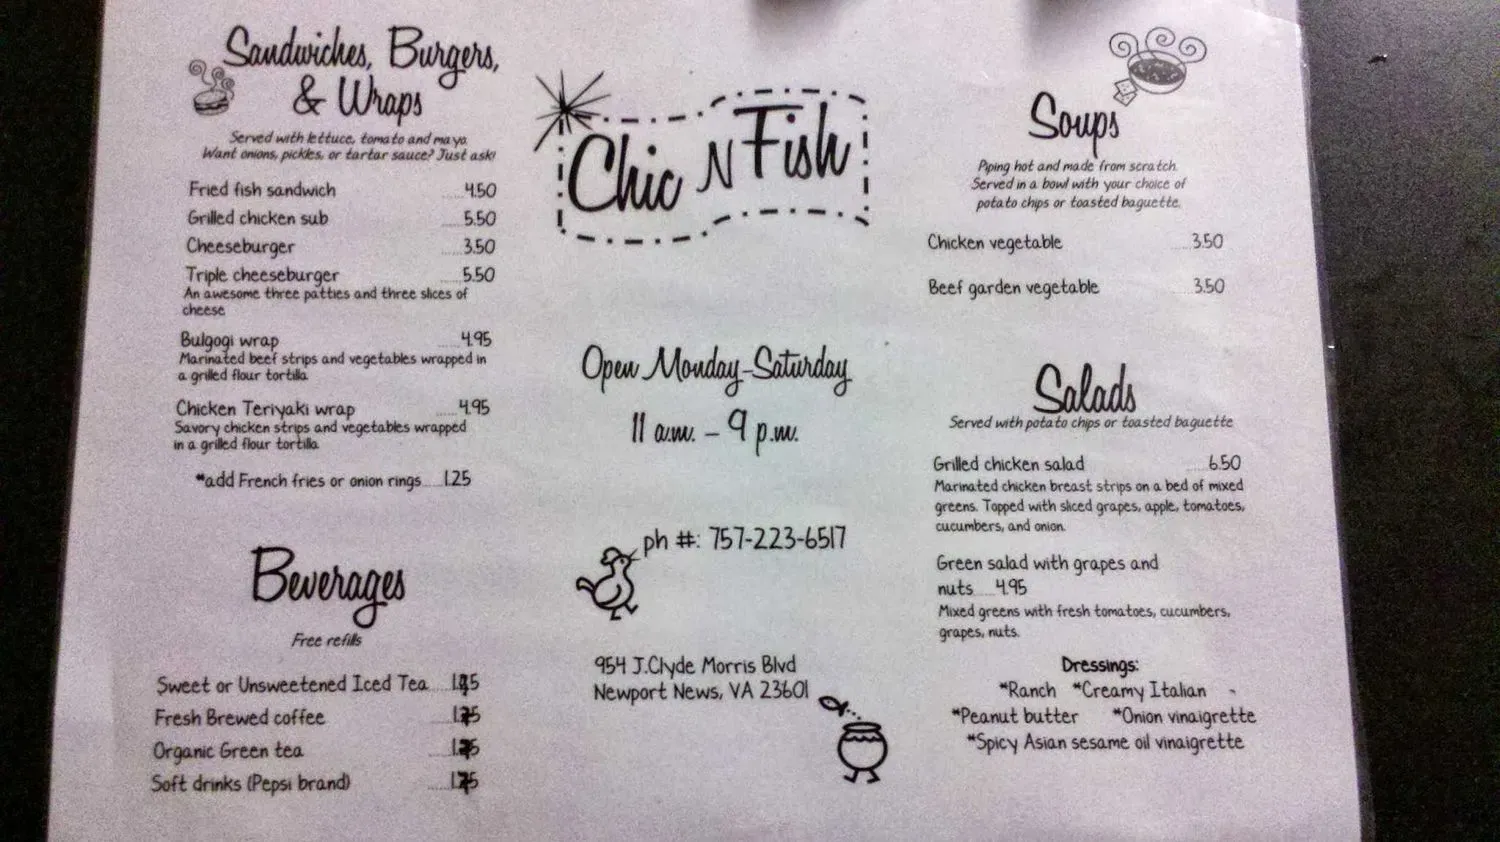 Sandwiches, Burgers,
& Wraps
Served with lettuce, tomato and mayo.
Want onions, pickles, or tartar sauce? Just ask!
Fried fish sandwich ......4.50
Grilled chicken sub ......5.50
Cheeseburger ......3.50
Triple cheeseburger ......5.50
An awesome three patties and three slices of
cheese
Bulgogi wrap ......4.95
Marinated beef strips and vegetables wrapped in
a grilled flour tortilla
Chicken Teriyaki wrap ......4.95
Savory chicken strips and vegetables wrapped
in a grilled flour tortilla
*add French fries or onion rings......1.25
Beverages
Free refills
Sweet or Unsweetened Iced Tea
Fresh Brewed coffee
Organic Green tea
Soft drinks (Pepsi brand)
Chic N Fish
Open Monday-Saturday
11 a.m. - 9 p.m.
ph #: 757-223-6517
954 J.Clyde Morris Blvd
Newport News, VA 23601
Soups
Piping hot and made from scratch.
Served in a bowl with your choice of
potato chips or toasted baguette.
Chicken vegetable ......3.50
Beef garden vegetable ......3.50
Salads
Served with potato chips or toasted baguette
Grilled chicken salad ......6.50
Marinated chicken breast strips on a bed of mixed
greens. Topped with sliced grapes, apple, tomatoes,
cucumbers, and onion.
Green salad with grapes and
nuts......4.95
Mixed greens with fresh tomatoes, cucumbers,
grapes, nuts.
Dressings:
*Ranch *Creamy Italian
*Peanut butter *Onion vinaigrette
*Spicy Asian sesame oil vinaigrette